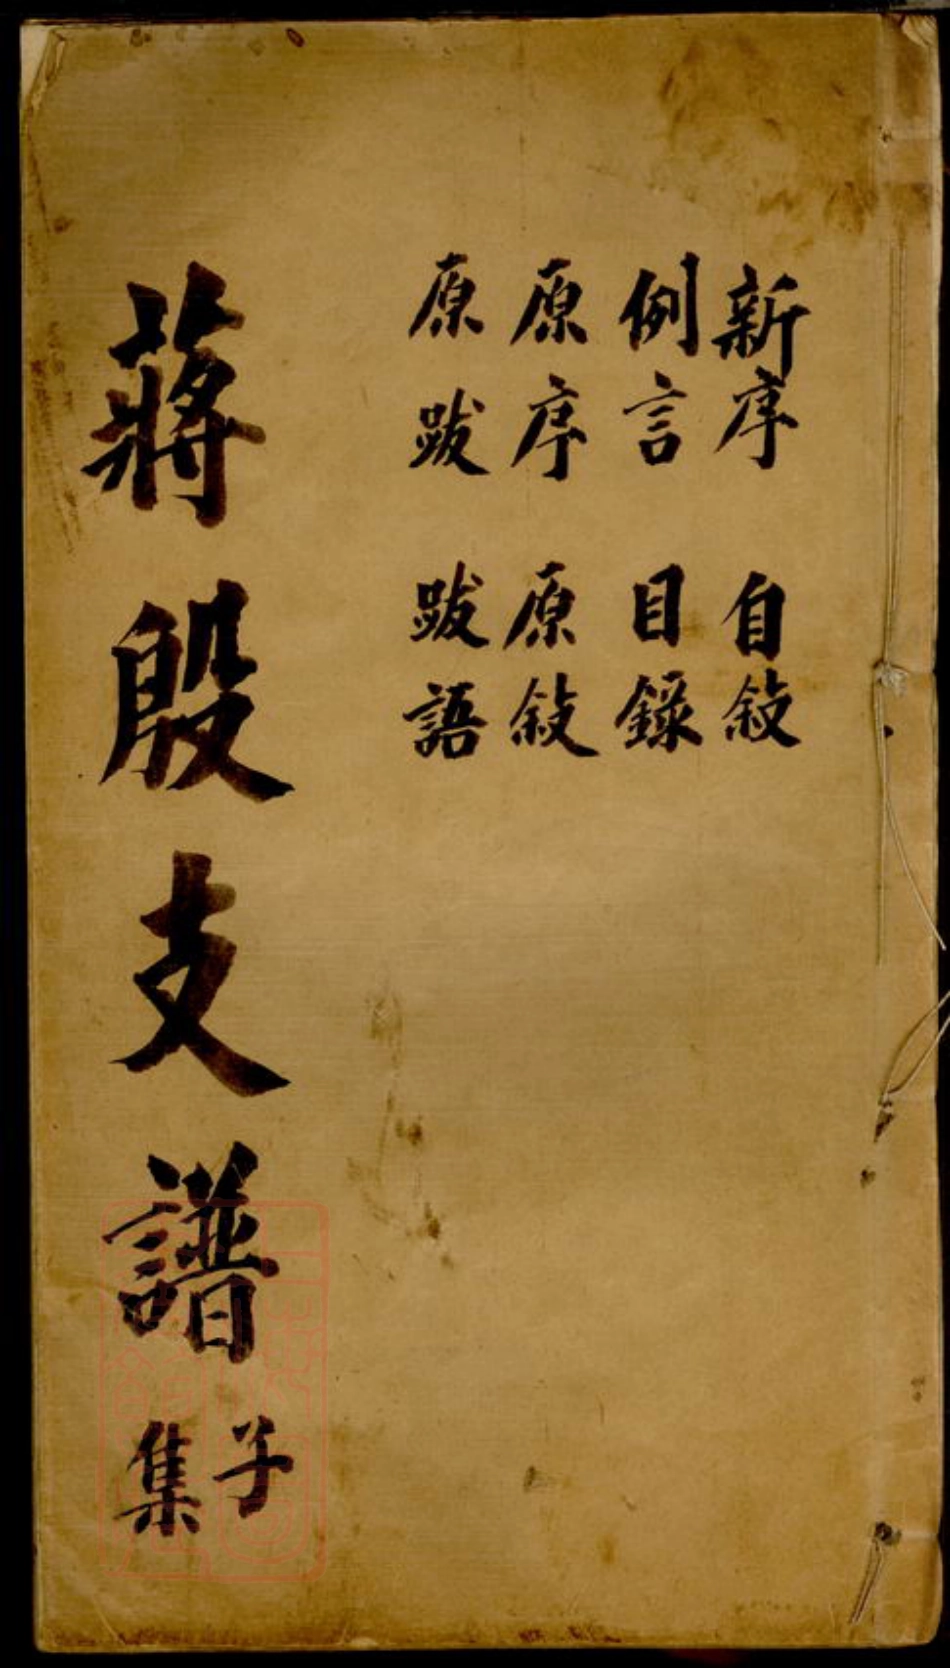 新序 自敘
例言 目錄
原序 原敘
原跋 跋語
蔣殷支譜 子集